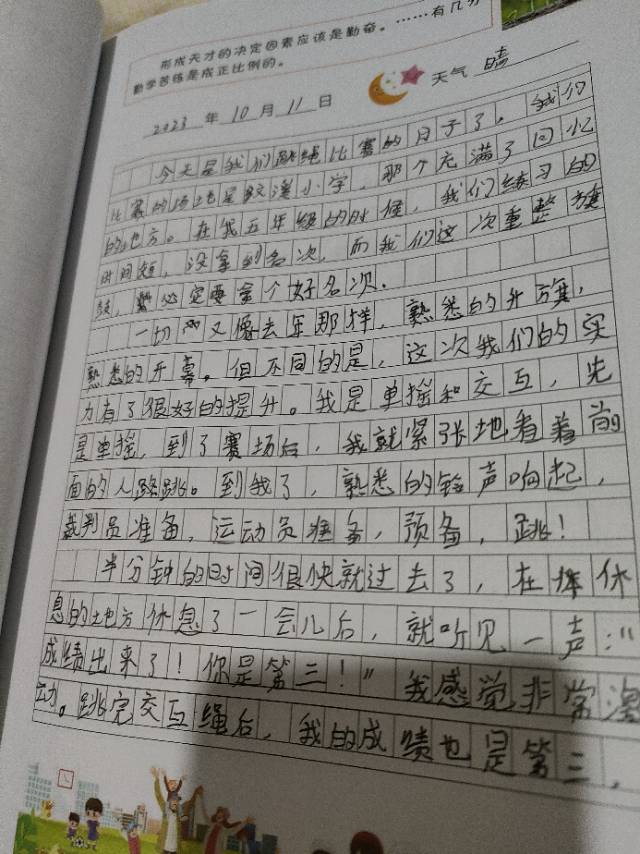 形成天才的决定因素应该是勤奋。……有几分
勤学苦练是成正比例的。
2023 年 10 月 11 日 天气 晴
今天是我们跳绳比赛的日子了，我们
比赛的场地是 小学，那个充满了回忆
的地方。在我五年级的时候，我们练习的
时间短，没拿到名次，而我们这次重整旗
鼓，决定要拿个好名次.
一切又像去年那样，熟悉的升旗，
熟悉的开幕。但不同的是，这次我们的实
力有了很好的提升。我是单摇和交互，先
是单摇，到了赛场后，我就紧张地看着前
面的人跳。到我了，熟悉的铃声响起，
裁判员准备，运动员准备，预备，跳！
半分钟的时间很快就过去了，在休
息的地方休息了一会儿后，就听见一声："
成绩出来了！你是第三！"我感觉非常激
动。跳完交互绳后，我的成绩也是第三，